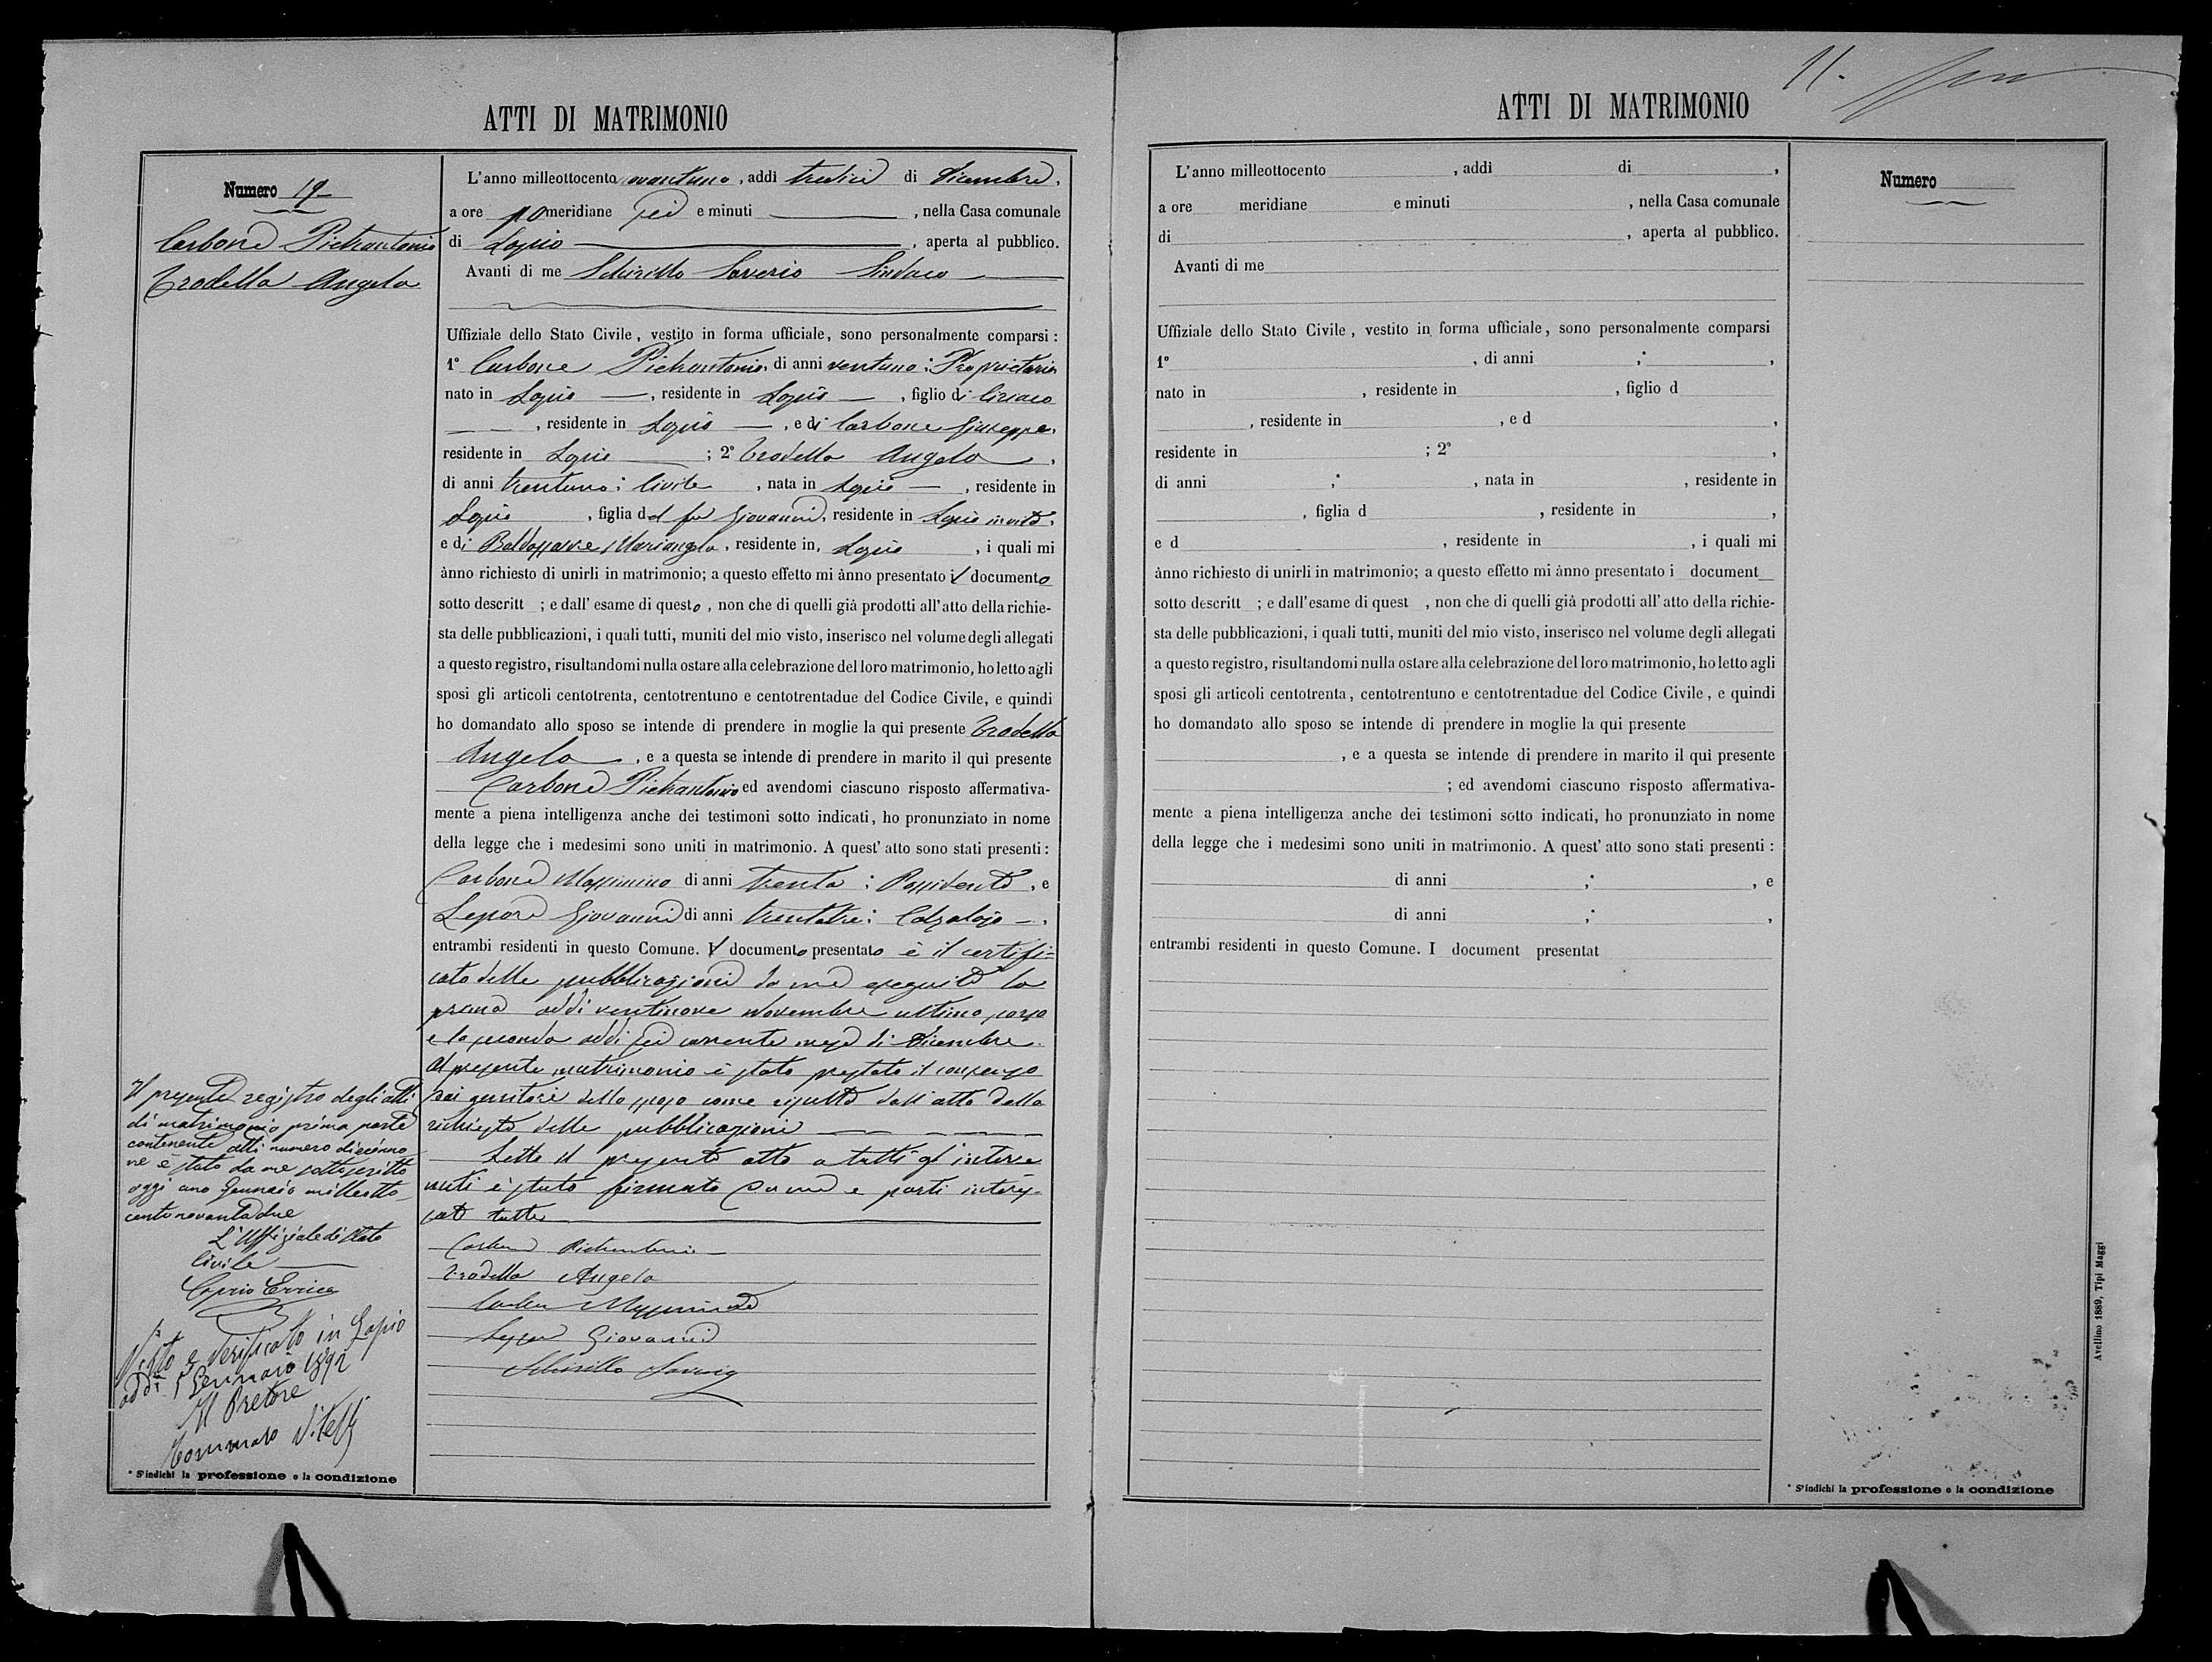 ATTI DI MATRIMONIO
Numero 19
Carbone Pietrantonio
Trodella Angela
L'anno milleottocento novantuno, addì tredici di Dicembre,
a ore pomeridiane sei e minuti , nella Casa comunale
di Lapio , aperta al pubblico.
Avanti di me Schirillo Saverio Sindaco
Uffiziale dello Stato Civile, vestito in forma ufficiale, sono personalmente comparsi:
1° Carbone Pietrantonio, di anni ventuno; Proprietario
nato in Lapio , residente in Lapio , figlio di Ciriaco
, residente in Lapio , e di Carbone Giuseppa,
residente in Lapio ; 2° Trodella Angela ,
di anni trentuno; Civile , nata in Lapio , residente in
Lapio , figlia del fu Giovanni, residente in Lapio in vita,
e di Baldassarre Mariangela, residente in, Lapio , i quali mi
ànno richiesto di unirli in matrimonio; a questo effetto mi ànno presentato il documento
sotto descritt ; e dall'esame di questo, non che di quelli già prodotti all'atto della richie-
sta delle pubblicazioni, i quali tutti, muniti del mio visto, inserisco nel volume degli allegati
a questo registro, risultandomi nulla ostare alla celebrazione del loro matrimonio, ho letto agli
sposi gli articoli centotrenta, centotrentuno e centotrentadue del Codice Civile, e quindi
ho domandato allo sposo se intende di prendere in moglie la qui presente Trodella
Angela , e a questa se intende di prendere in marito il qui presente
Carbone Pietrantonio ed avendomi ciascuno risposto affermativa-
mente a piena intelligenza anche dei testimoni sotto indicati, ho pronunziato in nome
della legge che i medesimi sono uniti in matrimonio. A quest'atto sono stati presenti:
Carbone Massimino di anni trenta; Possidente, e
Lepore Giovanni di anni trentatre; Calzolajo ,
entrambi residenti in questo Comune. Il documento presentato è il certifi=
cato delle pubblicazioni da me eseguite la
prima addì ventinove Novembre ultimo scorso
e la seconda addì sei corrente mese di Dicembre.
Al presente matrimonio è stato prestato il consenso
dai genitori dello sposo come risulta dall'atto della
richiesta delle pubblicazioni
Letto il presente atto a tutti gl'interve
nuti è stato firmato da me e parti interes-
sate tutte
Carbone Pietrantonio
Trodella Angela
Carbone Massimino
Lepore Giovanni
Schirillo Saverio
Il presente registro degli atti
di matrimonio prima parte
contenente atti numero dicianno
ve è stato da me sottoscritto
oggi uno Gennaio milleotto
cento novantadue
L'Uffiziale di Stato
Civile
Caprio Errico
Visto e verificato in Lapio
addì 5 Gennaio 1892
Il Pretore
Tommaso Vitelli
* S'indichi la professione o la condizione
11.
ATTI DI MATRIMONIO
L'anno milleottocento , addì di ,
a ore meridiane e minuti , nella Casa comunale
di , aperta al pubblico.
Avanti di me
Uffiziale dello Stato Civile, vestito in forma ufficiale, sono personalmente comparsi
1° , di anni ; ,
nato in , residente in , figlio d
, residente in , e d ,
residente in ; 2° ,
di anni ; , nata in , residente in
, figlia d , residente in ,
e d , residente in , i quali mi
ànno richiesto di unirli in matrimonio; a questo effetto mi ànno presentato i document
sotto descritt ; e dall'esame di quest , non che di quelli già prodotti all'atto della richie-
sta delle pubblicazioni, i quali tutti, muniti del mio visto, inserisco nel volume degli allegati
a questo registro, risultandomi nulla ostare alla celebrazione del loro matrimonio, ho letto agli
sposi gli articoli centotrenta, centotrentuno e centotrentadue del Codice Civile, e quindi
ho domandato allo sposo se intende di prendere in moglie la qui presente
, e a questa se intende di prendere in marito il qui presente
; ed avendomi ciascuno risposto affermativa-
mente a piena intelligenza anche dei testimoni sotto indicati, ho pronunziato in nome
della legge che i medesimi sono uniti in matrimonio. A quest'atto sono stati presenti:
di anni ; , e
di anni ; ,
entrambi residenti in questo Comune. I document presentat
Numero
* S'indichi la professione o la condizione
Avellino 1889, Tipi Maggi